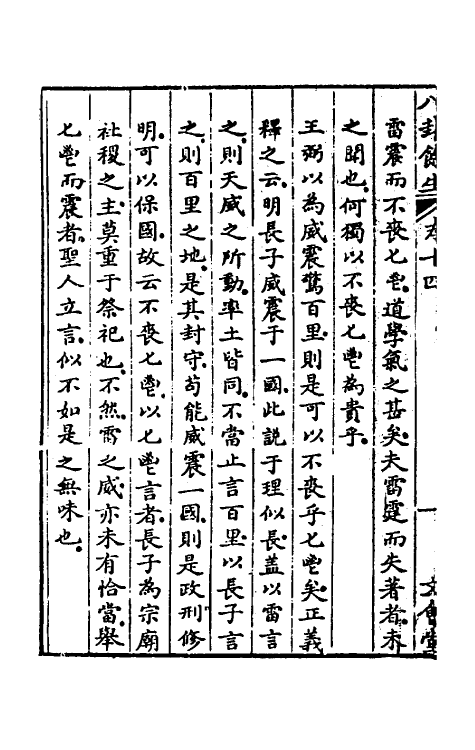 雷震而不喪匕鬯。道學氣之甚矣。夫雷霆而失著者。未
之聞也。何獨以不喪匕鬯為貴乎。
王弼以為威震驚百里。則是可以不喪乎匕鬯矣。正義
釋之云。明長子威震于一國。此説于理似長。蓋以雷言
之。則天威之所動。率土皆同。不當止言百里。以長子言
之。則百里之地。是其封守。苟能威震一國。則是政刑修
明。可以保國。故云不喪匕鬯。以匕鬯言者。長子為宗廟
社稷之主。莫重于祭祀也。不然。雷之威。亦未有恰當。舉
匕鬯而震者。聖人立言。似不如是之無味也。
卷十四
十
文會堂